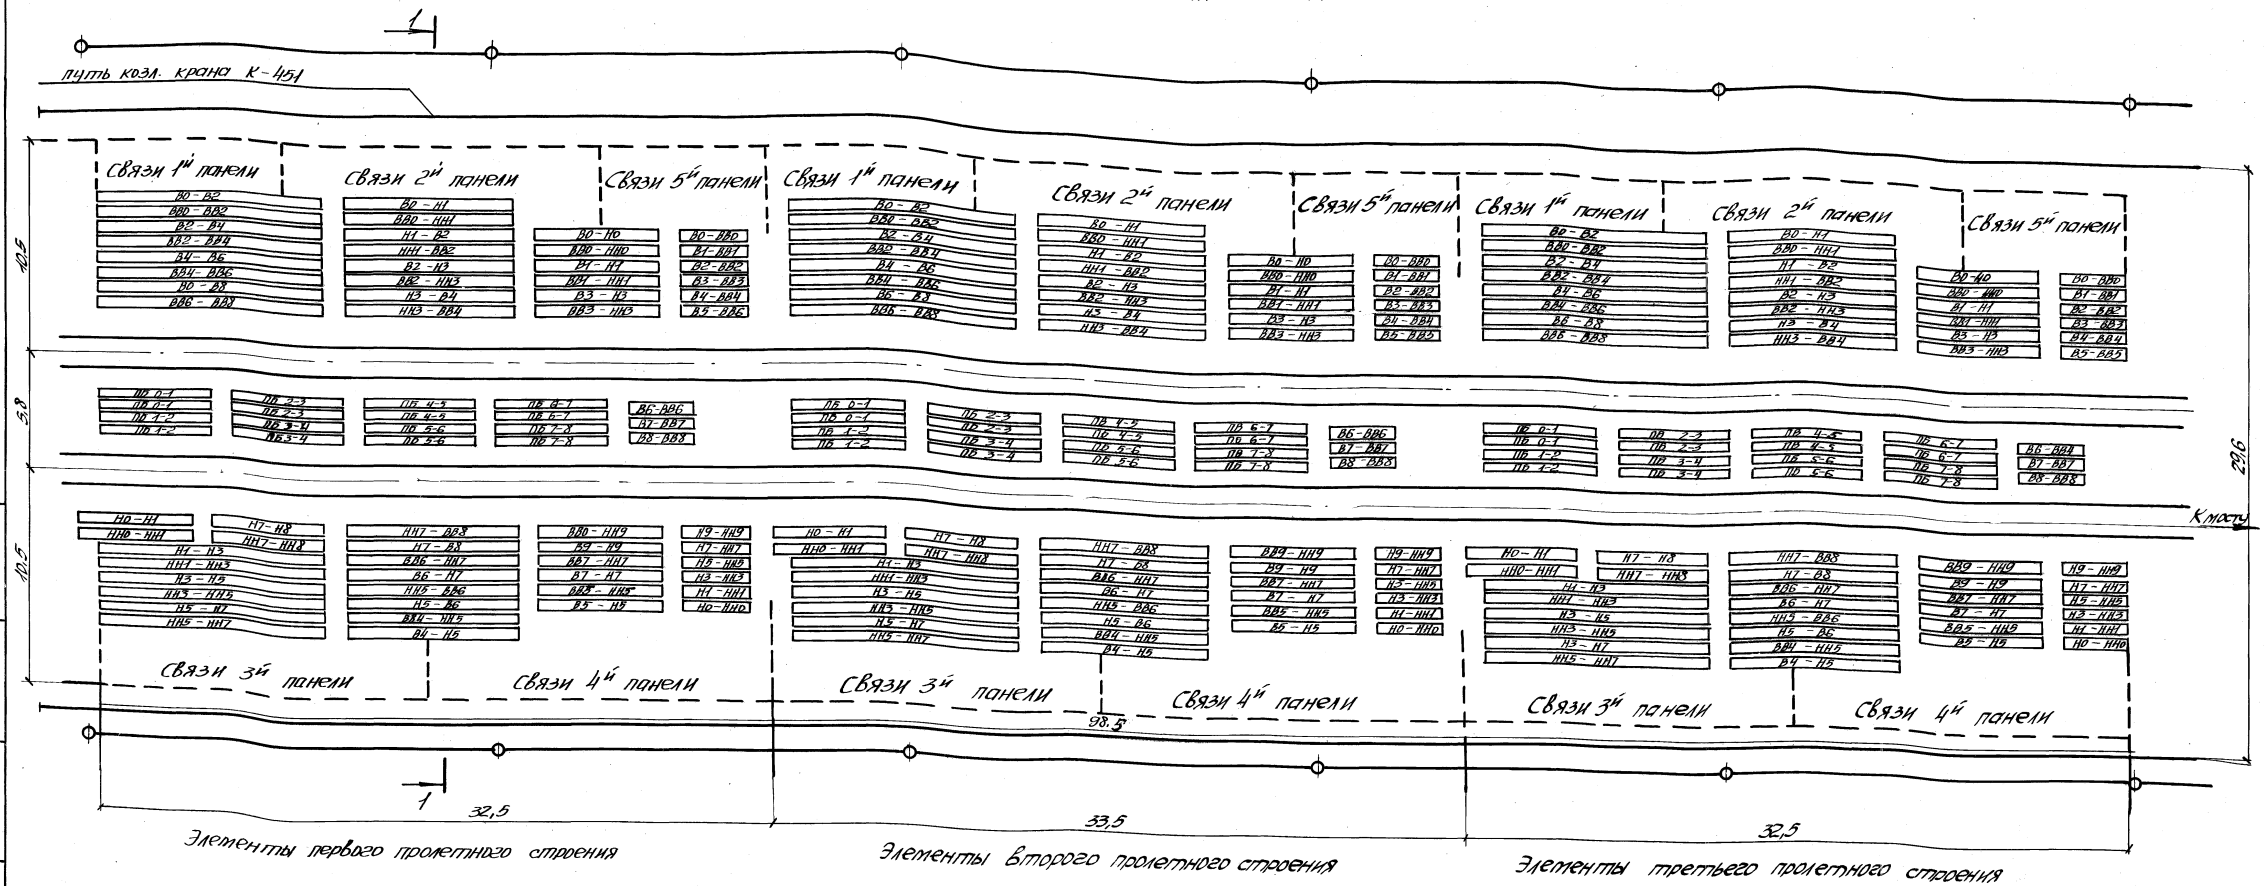 1
путь козл. крана К-451
Связи 1й панели
Связи 2й панели
Связи 5й панели
Связи 1й панели
Связи 2й панели
Связи 5й панели
Связи 1й панели
Связи 2й панели
Связи 5й панели
В0-В2
ВВ0-ВВ2
В2-В4
ВВ2-ВВ4
В4-В6
ВВ4-ВВ6
В0-В8
ВВ6-ВВ8
В0-Н1
ВВ0-НН1
Н1-В2
НН1-ВВ2
В2-Н3
ВВ2-НН3
Н3-В4
НН3-ВВ4
В0-Н0
ВВ0-НН0
В1-Н1
ВВ1-НН1
В3-Н3
ВВ3-НН3
В0-ВВ0
В1-ВВ1
В2-ВВ2
В3-ВВ3
В4-ВВ4
В5-ВВ6
В0-В2
ВВ0-ВВ2
В2-В4
ВВ2-ВВ4
В4-В6
ВВ4-ВВ6
В6-В8
ВВ6-ВВ8
В0-Н1
ВВ0-НН1
Н1-В2
НН1-ВВ2
В2-Н3
ВВ2-НН3
Н3-В4
НН3-ВВ4
В0-Н0
ВВ0-НН0
В1-Н1
ВВ1-НН1
В3-Н3
ВВ3-НН3
В0-ВВ0
В1-ВВ1
В2-ВВ2
В3-ВВ3
В4-ВВ4
В5-ВВ5
В0-В2
ВВ0-ВВ2
В2-В4
ВВ2-ВВ4
В4-В6
ВВ4-ВВ6
В6-В8
ВВ6-ВВ8
В0-Н1
ВВ0-НН1
Н1-В2
НН1-ВВ2
В2-Н3
ВВ2-НН3
Н3-В4
НН3-ВВ4
В0-Н0
ВВ0-НН0
В1-Н1
ВВ1-НН1
В3-Н3
ВВ3-НН3
В0-ВВ0
В1-ВВ1
В2-ВВ2
В3-ВВ3
В4-ВВ4
В5-ВВ5
10.5
5,8
10.5
29,6
ПБ 0-1
ПБ 0-1
ПБ 1-2
ПБ 1-2
ПБ 2-3
ПБ 2-3
ПБ 3-4
ПБ 3-4
ПБ 4-5
ПБ 4-5
ПБ 5-6
ПБ 5-6
ПБ 6-7
ПБ 6-7
ПБ 7-8
ПБ 7-8
В6-ВВ6
В7-ВВ7
В8-ВВ8
ПБ 0-1
ПБ 0-1
ПБ 1-2
ПБ 1-2
ПБ 2-3
ПБ 2-3
ПБ 3-4
ПБ 3-4
ПБ 4-5
ПБ 4-5
ПБ 5-6
ПБ 5-6
ПБ 6-7
ПБ 6-7
ПБ 7-8
ПБ 7-8
В6-ВВ6
В7-ВВ7
В8-ВВ8
ПБ 0-1
ПБ 0-1
ПБ 1-2
ПБ 1-2
ПБ 2-3
ПБ 2-3
ПБ 3-4
ПБ 3-4
ПБ 4-5
ПБ 4-5
ПБ 5-6
ПБ 5-6
ПБ 6-7
ПБ 6-7
ПБ 7-8
ПБ 7-8
В7-ВВ7
В8-ВВ8
К мосту
Н0-Н1
НН0-НН1
Н7-Н8
НН7-НН8
Н1-Н3
НН1-НН3
Н3-Н5
НН3-НН5
Н5-Н7
НН5-НН7
НН7-ВВ8
Н7-В8
ВВ6-НН7
В6-Н7
НН5-ВВ6
Н5-В6
ВВ4-НН5
В4-Н5
ВВ0-НН9
В9-Н9
ВВ7-НН7
В7-Н7
ВВ5-НН5
В5-Н5
Н9-НН9
Н7-НН7
Н5-НН5
Н3-НН3
Н1-НН1
Н0-НН0
Н0-Н1
НН0-НН1
Н7-Н8
НН7-НН8
Н1-Н3
НН1-НН3
Н3-Н5
НН3-НН5
Н5-Н7
НН5-НН7
НН7-ВВ8
Н7-В8
ВВ6-НН7
В6-Н7
НН5-ВВ6
Н5-В6
ВВ4-НН5
В4-Н5
ВВ9-НН9
В9-Н9
ВВ7-НН7
В7-Н7
ВВ5-НН5
В5-Н5
Н9-НН9
Н7-НН7
Н3-НН5
Н3-НН3
Н1-НН1
Н0-НН0
Н0-Н1
НН0-НН1
Н7-Н8
НН7-НН8
Н1-Н3
НН1-НН3
Н3-Н5
НН3-НН5
Н3-Н7
НН5-НН7
НН7-ВВ8
Н7-В8
ВВ6-НН7
В6-Н7
НН5-ВВ6
Н5-В6
ВВ4-НН5
В4-Н5
ВВ9-НН9
В9-Н9
ВВ7-НН7
В7-Н7
ВВ5-НН5
В5-Н5
Н9-НН9
Н7-НН7
Н5-НН5
Н3-НН3
Н1-НН1
Н0-НН0
Связи 3й панели
Связи 4й панели
Связи 3й панели
Связи 4й панели
Связи 3й панели
Связи 4й панели
98.5
1
32,5
33,5
32,5
Элементы первого пролетного строения
Элементы второго пролетного строения
Элементы третьего пролетного строения